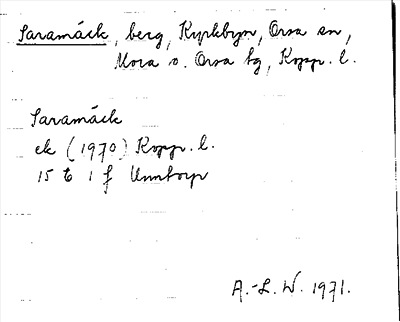 Saramäck, berg, Kyrkbyn, Orsa sn,
Mora o. Orsa tg, Kopp. l.
Saramäck
ek (1970) Kopp. l.
15 E 1 f Unntorp
A.-L. W. 1971.